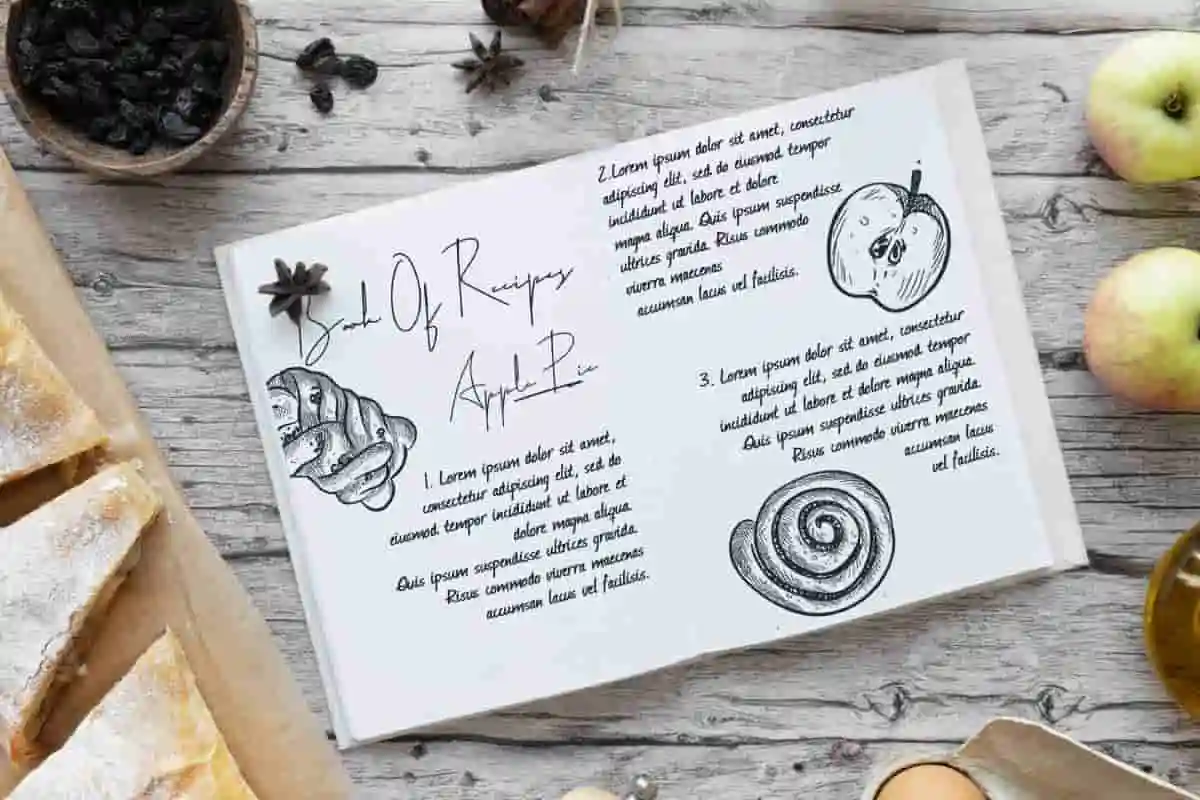 Book Of Recipes
Apple Pie
1. Lorem ipsum dolor sit amet,
consectetur adipiscing elit, sed do
eiusmod tempor incididunt ut labore et
dolore magna aliqua.
Quis ipsum suspendisse ultrices gravida.
Risus commodo viverra maecenas
accumsan lacus vel facilisis.
2.Lorem ipsum dolor sit amet, consectetur
adipiscing elit, sed do eiusmod tempor
incididunt ut labore et dolore
magna aliqua. Quis ipsum suspendisse
ultrices gravida. Risus commodo
viverra maecenas
accumsan lacus vel facilisis.
3. Lorem ipsum dolor sit amet, consectetur
adipiscing elit, sed do eiusmod tempor
incididunt ut labore et dolore magna aliqua.
Quis ipsum suspendisse ultrices gravida.
Risus commodo viverra maecenas
accumsan lacus
vel facilisis.